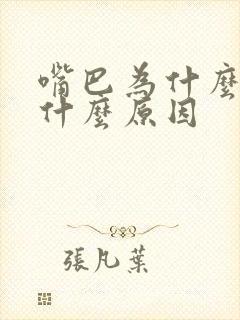 嘴巴為什麼
什麼原因
張凡葉